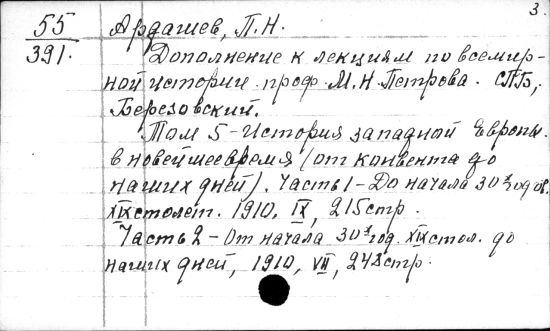 3.
55
391.
Ардашев, П.Н.
Дополнение к лекциям по всемир-
ной истории проф. М.Н. Петрова. СПБ,
Березовский.
Том 5 - История западной Европы
в новейшее время (от конвента до
наших дней). Часть 1 - До начала 30х годов.
XIX столет. 1910. IX, 215 стр.
Часть 2 - От начала 30х год. XIX стол. до
наших дней, 1910, VII, 248 стр.